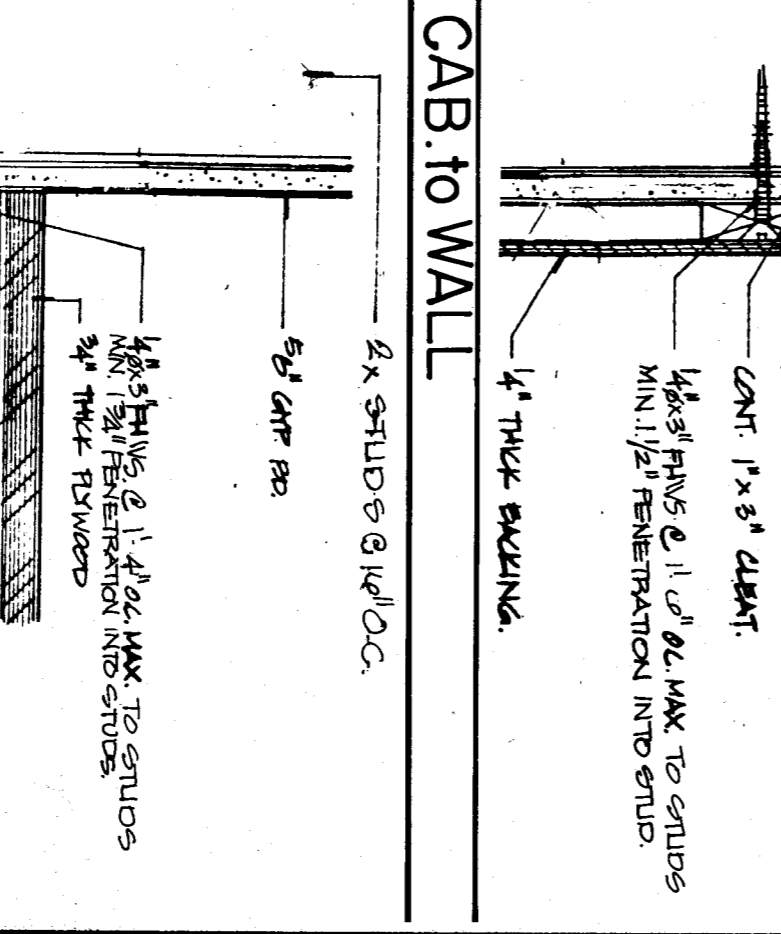 CONT. 1" x 3" CLEAT.
1/4"øx3" FHWS. @ 1'-6" OC. MAX. TO STUDS
MIN. 1 1/2" PENETRATION INTO STUD.
1/4" THICK BACKING.
CAB. to WALL
2x STUDS @ 16" O.C.
5/8" GYP. BD.
1/4"øx3" FHWS. @ 1'-4" OC. MAX. TO STUDS
MIN. 1 3/4" PENETRATION INTO STUDS.
3/4" THICK PLYWOOD